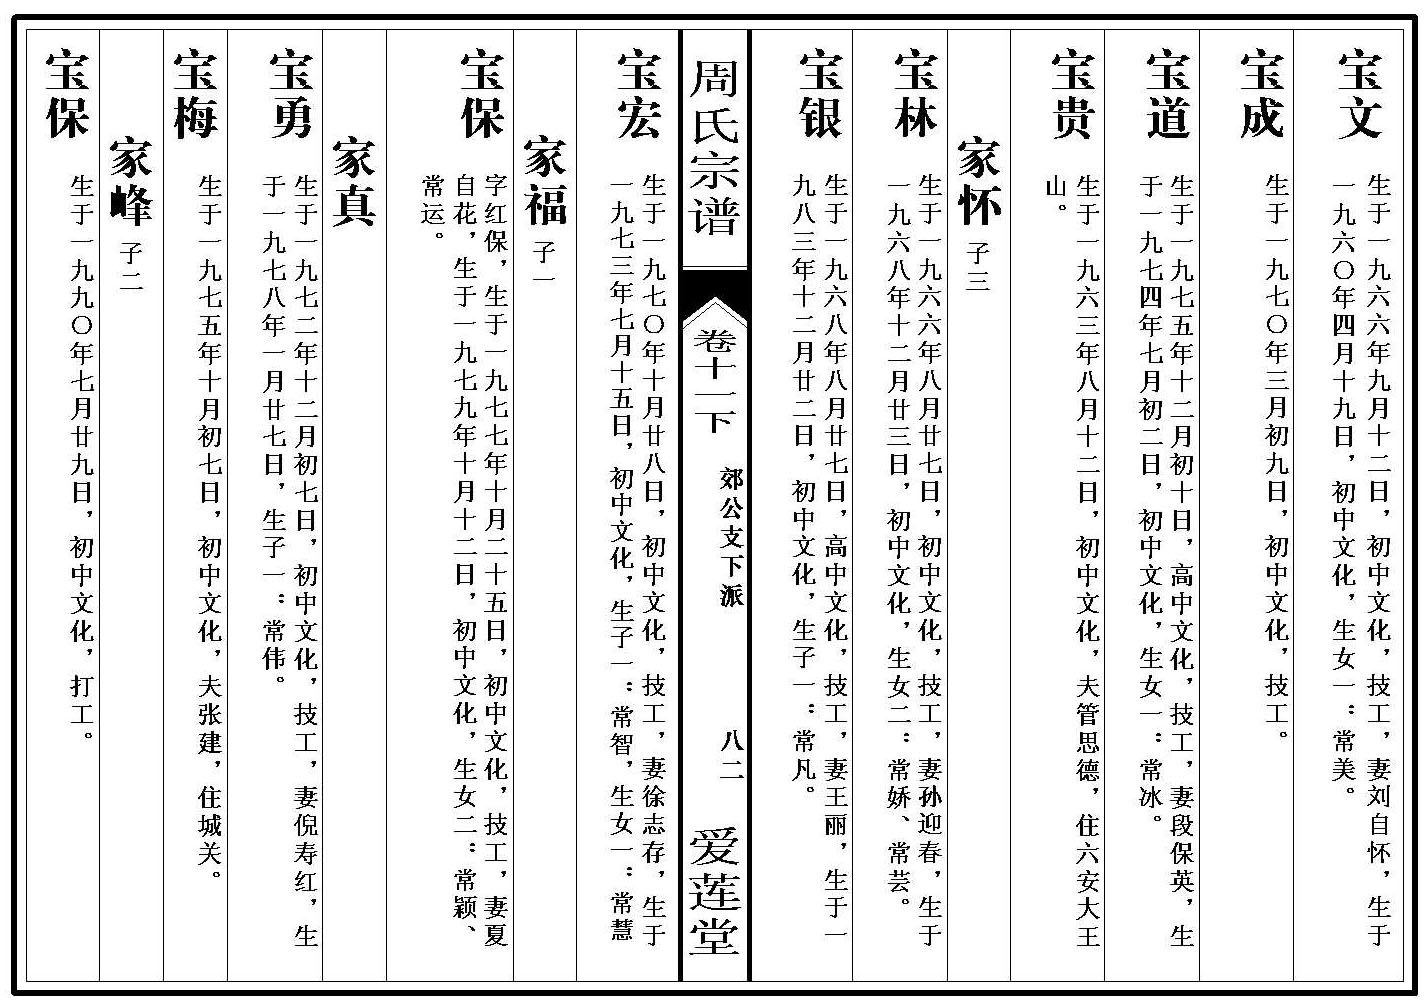 宝文
生于一九六六年九月十二日，初中文化，技工，妻刘自怀，生于
一九六〇年四月十九日，初中文化，生女一：常美。
宝成
生于一九七〇年三月初九日，初中文化，技工。
宝道
生于一九七五年十二月初十日，高中文化，技工，妻段保英，生
于一九七四年七月初二日，初中文化，生女一：常冰。
宝贵
生于一九六三年八月十二日，初中文化，夫管思德，住六安大王
山。
家怀 子三
宝林
生于一九六六年八月廿七日，初中文化，技工，妻孙迎春，生于
一九六八年十二月廿三日，初中文化，生女二：常娇、常芸。
宝银
生于一九六八年八月廿七日，高中文化，技工，妻王丽，生于一
九八三年十二月廿二日，初中文化，生子一：常凡。
周氏宗谱
卷十二下
郊公支下派
八二
爱莲堂
宝宏
生于一九七〇年十月廿八日，初中文化，技工，妻徐志存，生于
一九七三年七月十五日，初中文化，生子一：常智，生女一：常慧
家福 子一
宝保
字红保，生于一九七七年十月二十五日，初中文化，技工，妻夏
自花，生于一九七九年十月十二日，初中文化，生女二：常颖、
常运。
家真
宝勇
生于一九七二年十二月初七日，初中文化，技工，妻倪寿红，生
于一九七八年一月廿七日，生子一：常伟。
宝梅
生于一九七五年十月初七日，初中文化，夫张建，住城关。
家峰 子二
宝保
生于一九九〇年七月廿九日，初中文化，打工。